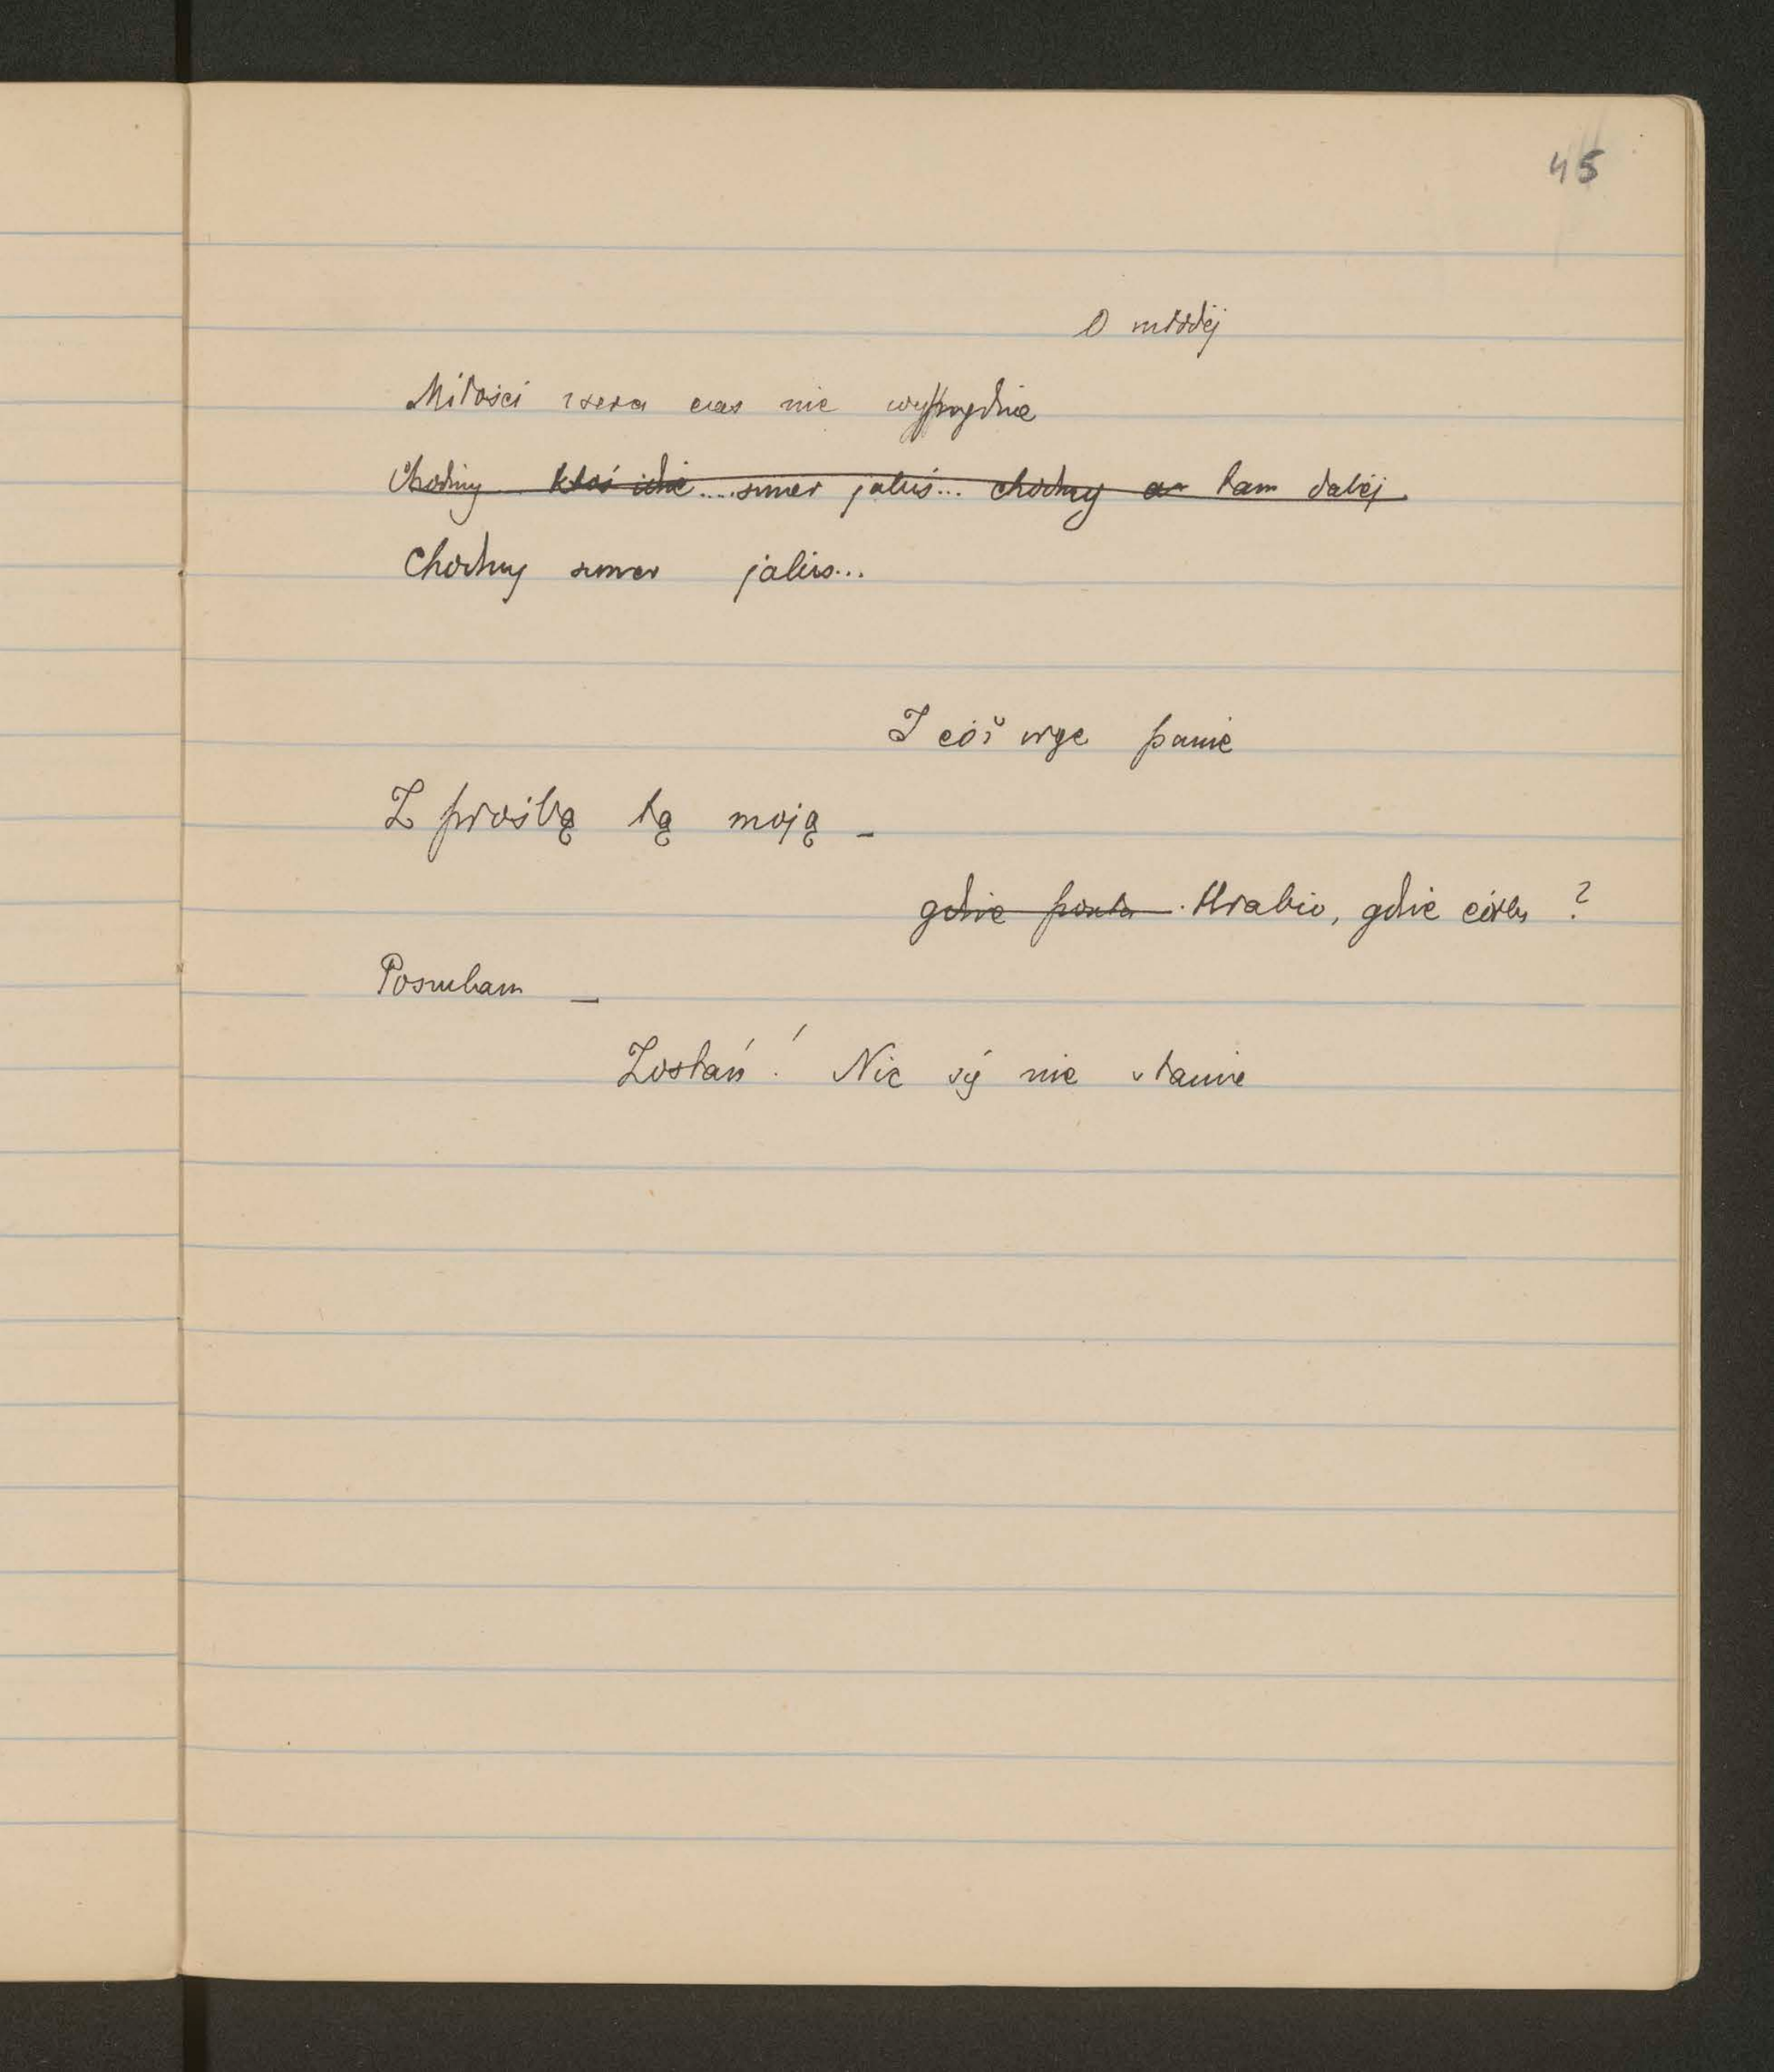 45
O młodej
Miłości czera czas nie wyprzędnie
Chodźmy ... ktoś idzie .... szmer jakiś... chodźmy tam dalej
Chodźmy szmer jakiś...
I cóż wrze panie
Z prośbą tą moją –
gdzie Hrabio, gdzie córka ?
Poszukam –
Zostań! Nic się nie stanie